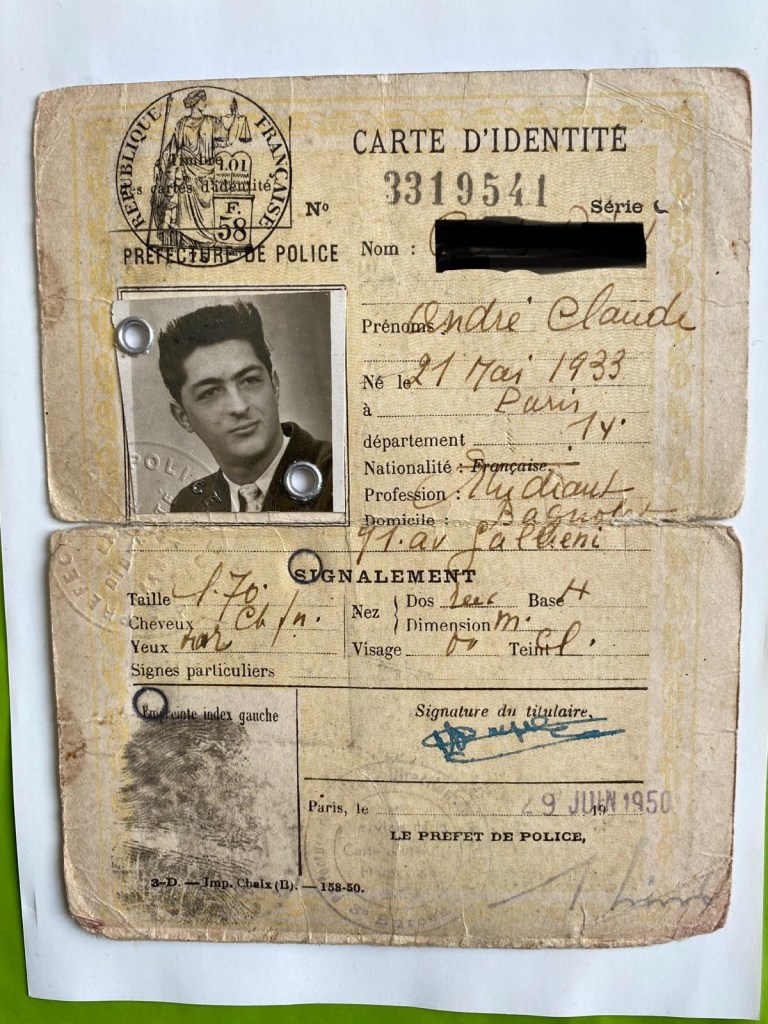 RÉPUBLIQUE FRANÇAISE
LOI
Timbre
des cartes d'identité
F.
58
PRÉFECTURE DE POLICE
CARTE D'IDENTITÉ
Nº 3319541 Série
Nom :
Prénoms : André Claude
Né le 21 Mai 1933
à Paris
département 14.
Nationalité : Française.
Profession : Etudiant
Domicile : Bagnolet
91. av Gallieni
SIGNALEMENT
Taille 1.70.
Cheveux Ch
Yeux mar
Signes particuliers
Nez Dos rec Base H
Dimension m.
Visage Teint Cl.
Empreinte index gauche
Signature du titulaire,
Paris, le 29 JUIN 1950
19
LE PRÉFET DE POLICE,
3-D. — Imp. Chaix (B). — 158-50.